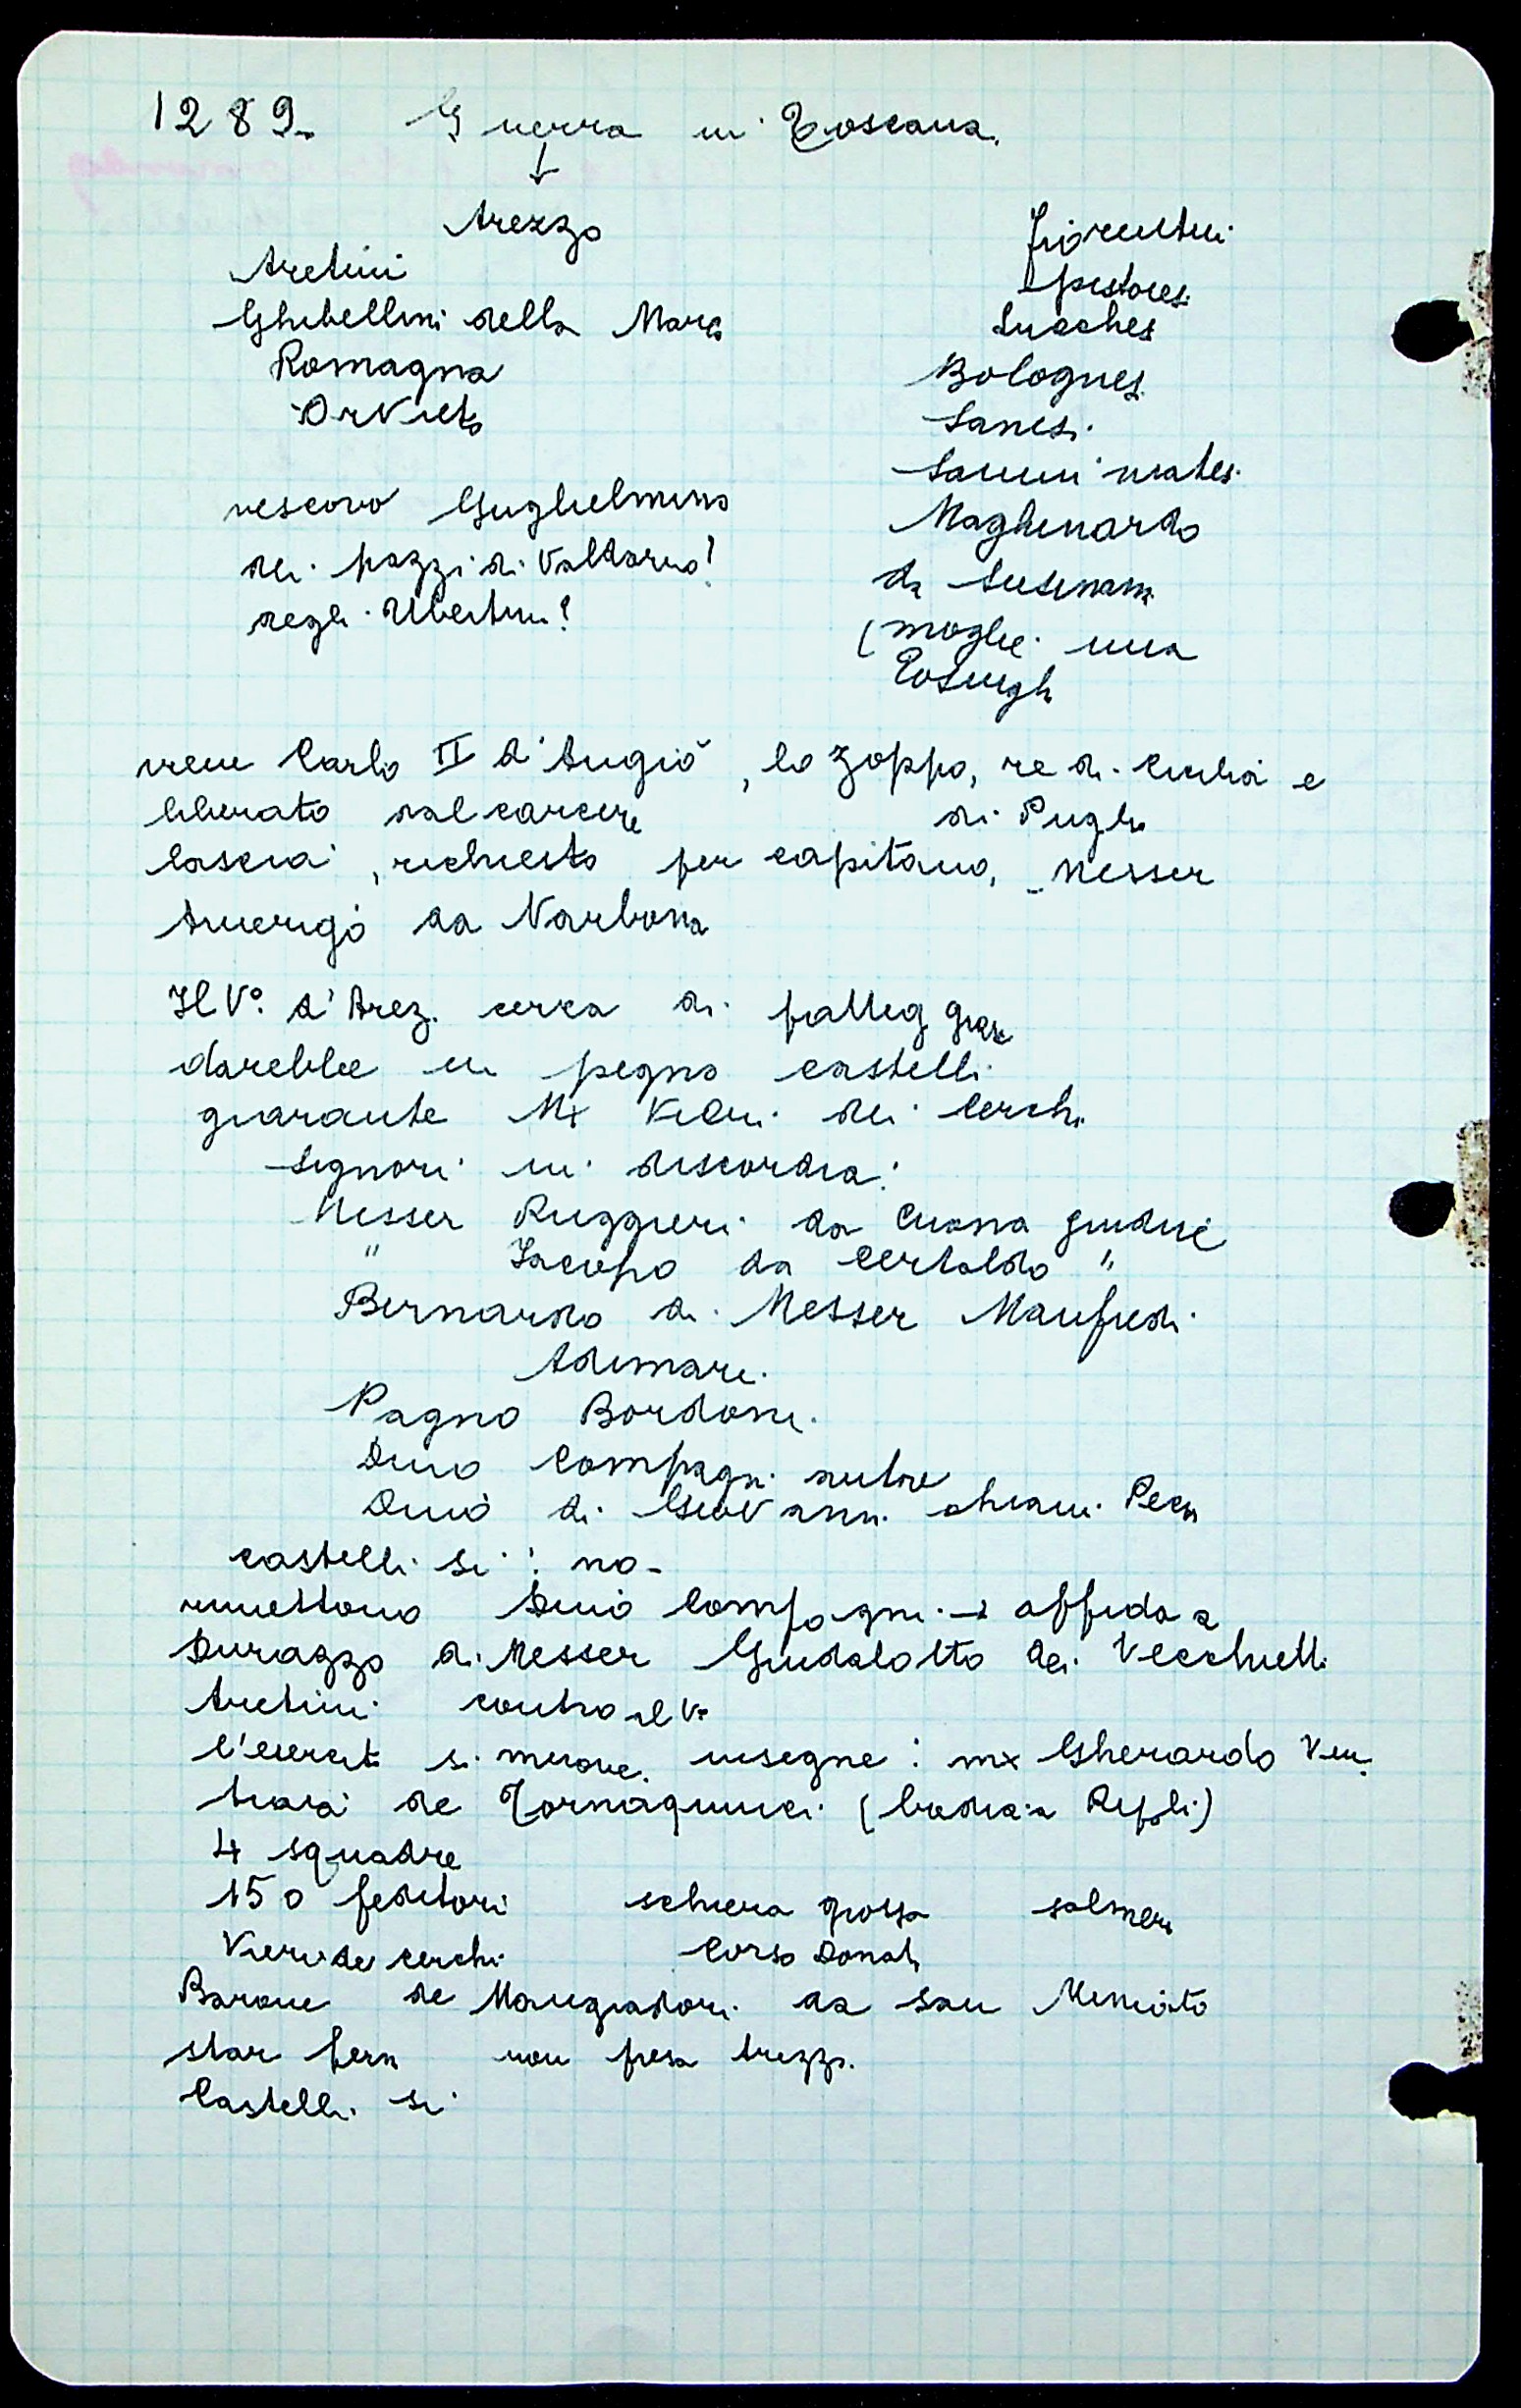 1289. Guerra in Toscana.
↓
Arezzo
Aretini
Ghibellini della Marca
Romagna
Orvieto
vescovo Guglielmino
dei pazzi di Valdarno?
degli Ubertini?
fiorentini
pistoiesi
Lucchesi
Bolognesi
Sanesi
Samminiatesi
Maghinardo
da Susinana
(moglie una
Tosinghi
viene Carlo II d'Angiò, lo zoppo, re di Cicilia e
liberato dal carcere di Puglia
lascia, richiesto per capitano, Messer
Amerigo da Narbona
Il Vo. d'Arez. cerca di patteggiare
darebbe in pegno castelli
garante Mx Vieri dei Cerchi
Signori in discordia:
Messer Ruggieri da Cuona giudice
" Jacopo da Certaldo "
Bernardo di Messer Manfredi
Adimari
Pagno Bordoni
Dino Compagni autore
Dino di Giovanni chiam. Pecora
castelli si: no-
rimettono Dino Compagni → affida a
Durazzo di Messer Guidalotto dei Vecchietti
Aretini contro il Vo
l'esercito si muove. insegne: mx Gherardo Ven
traia de Tornaquinci (badia a Ripoli)
4 squadre
150 feditori schiera grossa salmerie
Vieri de Cerchi Corso Donati
Barone de Mangiadori da San Miniato
star fermi non presa Arezzo.
Castelli si